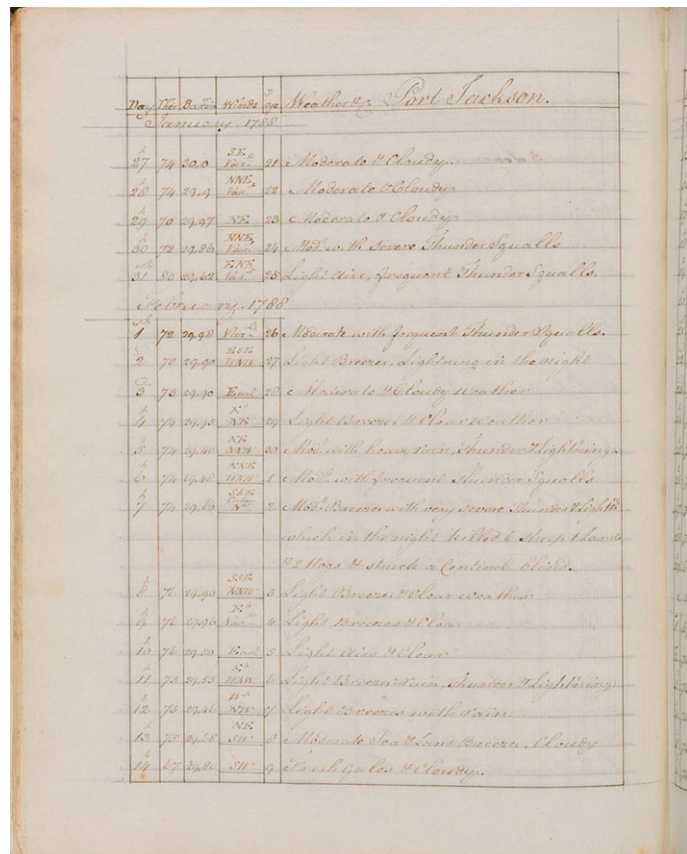 Day Ther Barom Winds Weather &c Port Jackson.
January 1788
27 74 30,0 SE Var 21 Moderate & Cloudy.
28 74 29,9 NNE Var 22 Moderate & Cloudy
29 70 29,97 NE 23 Moderate & Cloudy
30 72 29,86 NNE Var 24 Mod. with Severe Thunder Squalls
31 80 29,62 ENE Var 25 Light Airs, frequent Thunder Squalls.
February 1788
1 72 29,98 Var 26 Moderate with frequent Thunder Squalls.
2 70 29,90 27 Light Breezes, Lightning in the night
3 73 29,90 East 28 Moderate & Cloudy weather
4 74 NE 29 Light Breezes & Clear weather
5 74 NE NNW 30 Mod. with heavy rain, Thunder & Lightning
6 74 NNE 1 Mod. with frequent Thunder Squalls
7 74 2 Mod. Breezes with very severe Thunder & Light
which in the night killed 6 Sheep 1 Lamb
& 2 Hogs & struck a Centinel blind.
8 SSE NNW 3 Light Breezes & Clear weather
9 Var 4 Light Breezes & Clear
10 76 East 5 Light Airs & Clear
11 73 29,53 6 Light Breezes rain, thunder & Lightning
12 75 29,46 7 Light Breezes with rain.
13 75 NE SW 8 Moderate Sea & Land Breezes, Cloudy
14 67 SW 9 Fresh Gales & Cloudy.